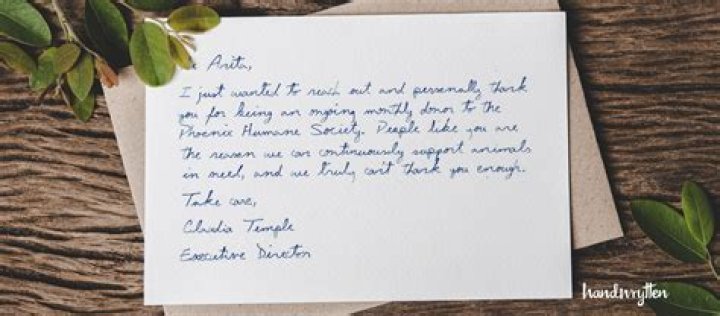 Anita,
I just wanted to reach out and personally thank
you for being an ongoing monthly donor to the
Phoenix Humane Society. People like you are
the reason we can continuously support animals
in need, and we truly can't thank you enough.
Take care,
Claudia Temple
Executive Director
handwrytten